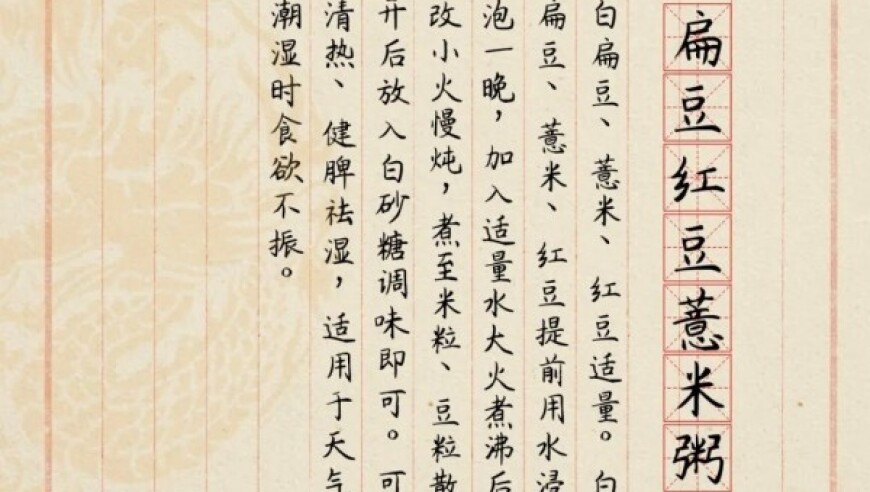 扁豆红豆薏米粥
白扁豆、薏米、红豆适量。白
扁豆、薏米、红豆提前用水浸
泡一晚，加入适量水大火煮沸后
改小火慢炖，煮至米粒、豆粒散
开后放入白砂糖调味即可。可
清热、健脾祛湿，适用于天气
潮湿时食欲不振。